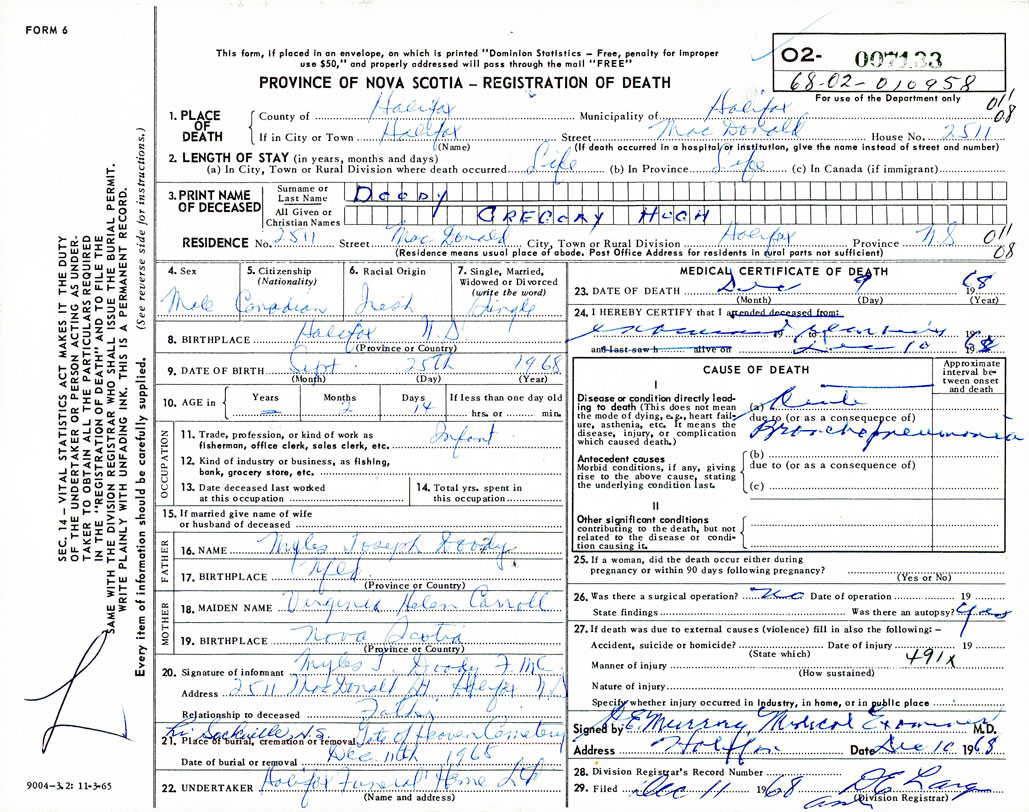 FORM 6
This form, if placed in an envelope, on which is printed "Dominion Statistics – Free, penalty for improper
use $50," and properly addressed will pass through the mail "FREE"
PROVINCE OF NOVA SCOTIA – REGISTRATION OF DEATH
02- 007133
68-02-010958
For use of the Department only
011
08
1. PLACE OF DEATH
County of Halifax Municipality of Halifax
If in City or Town Halifax Street MacDonald House No. 2511
(Name) (If death occurred in a hospital or institution, give the name instead of street and number)
2. LENGTH OF STAY (in years, months and days)
(a) In City, Town or Rural Division where death occurred Life (b) In Province Life (c) In Canada (if immigrant)
3. PRINT NAME OF DECEASED
Surname or Last Name DOODY
All Given or Christian Names GREGORY HUGH
RESIDENCE No. 2511 Street MacDonald City, Town or Rural Division Halifax Province N.S
(Residence means usual place of abode. Post Office Address for residents in rural parts not sufficient)
011
08
4. Sex
Male
5. Citizenship
(Nationality)
Canadian
6. Racial Origin
Iresh
7. Single, Married,
Widowed or Divorced
(write the word)
Single
8. BIRTHPLACE Halifax N.S
(Province or Country)
9. DATE OF BIRTH Sept. 25th 1968
(Month) (Day) (Year)
10. AGE in
Years Months Days If less than one day old
– 2 14 hrs. or min.
OCCUPATION
11. Trade, profession, or kind of work as
fisherman, office clerk, sales clerk, etc. Infant
12. Kind of industry or business, as fishing,
bank, grocery store, etc.
13. Date deceased last worked
at this occupation
14. Total yrs. spent in
this occupation
15. If married give name of wife
or husband of deceased
FATHER
16. NAME Myles Joseph Doody
17. BIRTHPLACE Nfld
(Province or Country)
MOTHER
18. MAIDEN NAME Virginia Helen Carroll
19. BIRTHPLACE Nova Scotia
(Province or Country)
20. Signature of informant Myles J. Doody F.MC.
Address 2511 MacDonald St Halifax N.S
Relationship to deceased Father
Lr. Sackville, N.S.
21. Place of burial, cremation or removal Gate of Heaven Cemetery
Date of burial or removal Dec. 11th 1968
22. UNDERTAKER Halifax Funeral Home Ltd
(Name and address)
MEDICAL CERTIFICATE OF DEATH
23. DATE OF DEATH Dec 9 1968
(Month) (Day) (Year)
24. I HEREBY CERTIFY that I attended deceased from:
examined 19 to 19
and last saw h alive on Dec 10 1968
CAUSE OF DEATH
Approximate
interval be-
tween onset
and death
I
Disease or condition directly lead-
ing to death (This does not mean
the mode of dying, e.g., heart fail-
ure, asthenia, etc. It means the
disease, injury, or complication
which caused death.)
(a) Acute
due to (or as a consequence of)
Bronchopneumonia
Antecedent causes
Morbid conditions, if any, giving
rise to the above cause, stating
the underlying condition last.
(b)
due to (or as a consequence of)
(c)
II
Other significant conditions
contributing to the death, but not
related to the disease or condi-
tion causing it.
25. If a woman, did the death occur either during
pregnancy or within 90 days following pregnancy?
(Yes or No)
26. Was there a surgical operation? No Date of operation 19
State findings Was there an autopsy? Yes
27. If death was due to external causes (violence) fill in also the following: –
Accident, suicide or homicide? Date of injury 19
(State which) 491X
Manner of injury
(How sustained)
Nature of injury
Specify whether injury occurred in Industry, in home, or in public place
Signed by Murray Medical Examiner M.D.
Address Halifax Date Dec 10 1968
28. Division Registrar's Record Number
29. Filed Dec 11 1968
(Division Registrar)
SEC. 14 – VITAL STATISTICS ACT MAKES IT THE DUTY
OF THE UNDERTAKER OR PERSON ACTING AS UNDER-
TAKER TO OBTAIN ALL THE PARTICULARS REQUIRED
IN THE "REGISTRATION OF DEATH" AND TO FILE THE
SAME WITH THE DIVISION REGISTRAR WHO SHALL ISSUE THE BURIAL PERMIT.
WRITE PLAINLY WITH UNFADING INK. THIS IS A PERMANENT RECORD.
Every item of information should be carefully supplied. (See reverse side for instructions.)
9004-3.2: 11-3-65